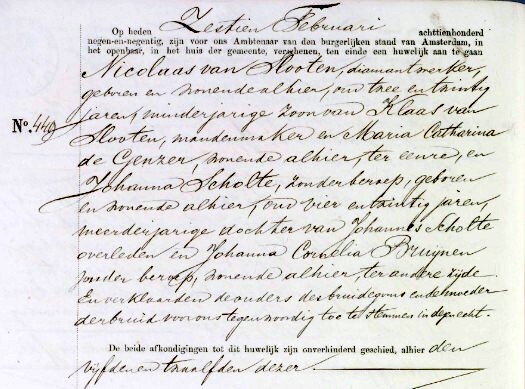 Op heden Zestien Februari achttienhonderd
negen-en-negentig, zijn voor ons Ambtenaar van den burgerlijken stand van Amsterdam, in
het openbaar, in het huis der gemeente, verschenen, ten einde een huwelijk aan te gaan
Nicolaas van Slooten, diamantwerker,
geboren en wonende alhier, oud twee en twintig
jaren, minderjarige zoon van Klaas van
No. 449 Slooten, mandenmaker en Maria Catharina
de Genzer, wonende alhier, ter eenre, en
Johanna Scholte, zonder beroep, geboren
en wonende alhier, oud vier en twintig jaren,
meerderjarige dochter van Johannes Scholte
overleden en Johanna Cornelia Bruijnen
zonder beroep, wonende alhier, ter andere zijde.
En verklaarden de ouders des bruidegoms en de moeder
der bruid voor ons tegenwoordig toe te stemmen in de echt.
De beide afkondigingen tot dit huwelijk zijn onverhinderd geschied, alhier den
vijfden en twaalfden dezer.